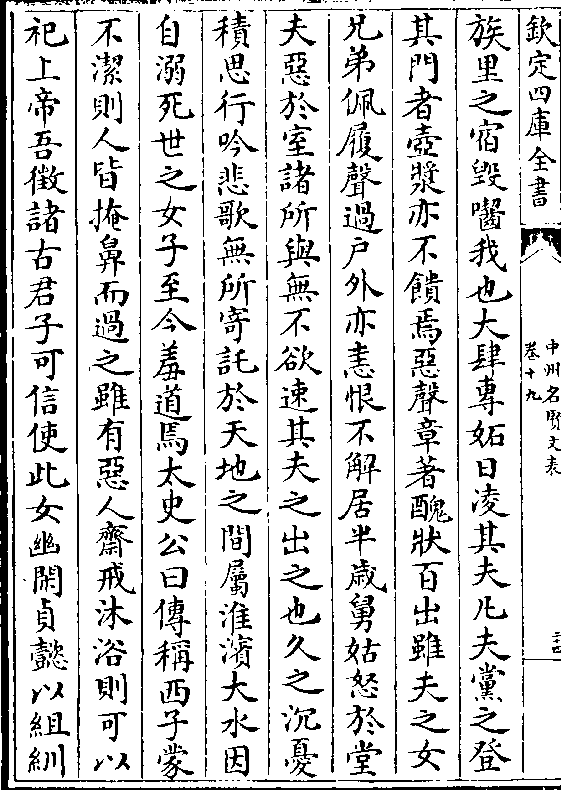 欽定四庫全書
中州名賢文表
卷十九
二十四
族里之宿毀嚙我也大肆專妬日凌其夫凡夫黨之登
其門者壺漿亦不饋焉惡聲章著醜狀百出雖夫之女
兄弟佩履聲過戶外亦恚恨不解居半歳舅姑怒於堂
夫惡於室諸所與無不欲速其夫之出之也久之沉憂
積思行吟悲歌無所寄託於天地之間屬淮濱大水因
自溺死世之女子至今羞道焉太史公曰傳稱西子蒙
不潔則人皆掩鼻而過之雖有惡人齋戒沐浴則可以
祀上帝吾徵諸古君子可信使此女幽閑貞懿以組紃